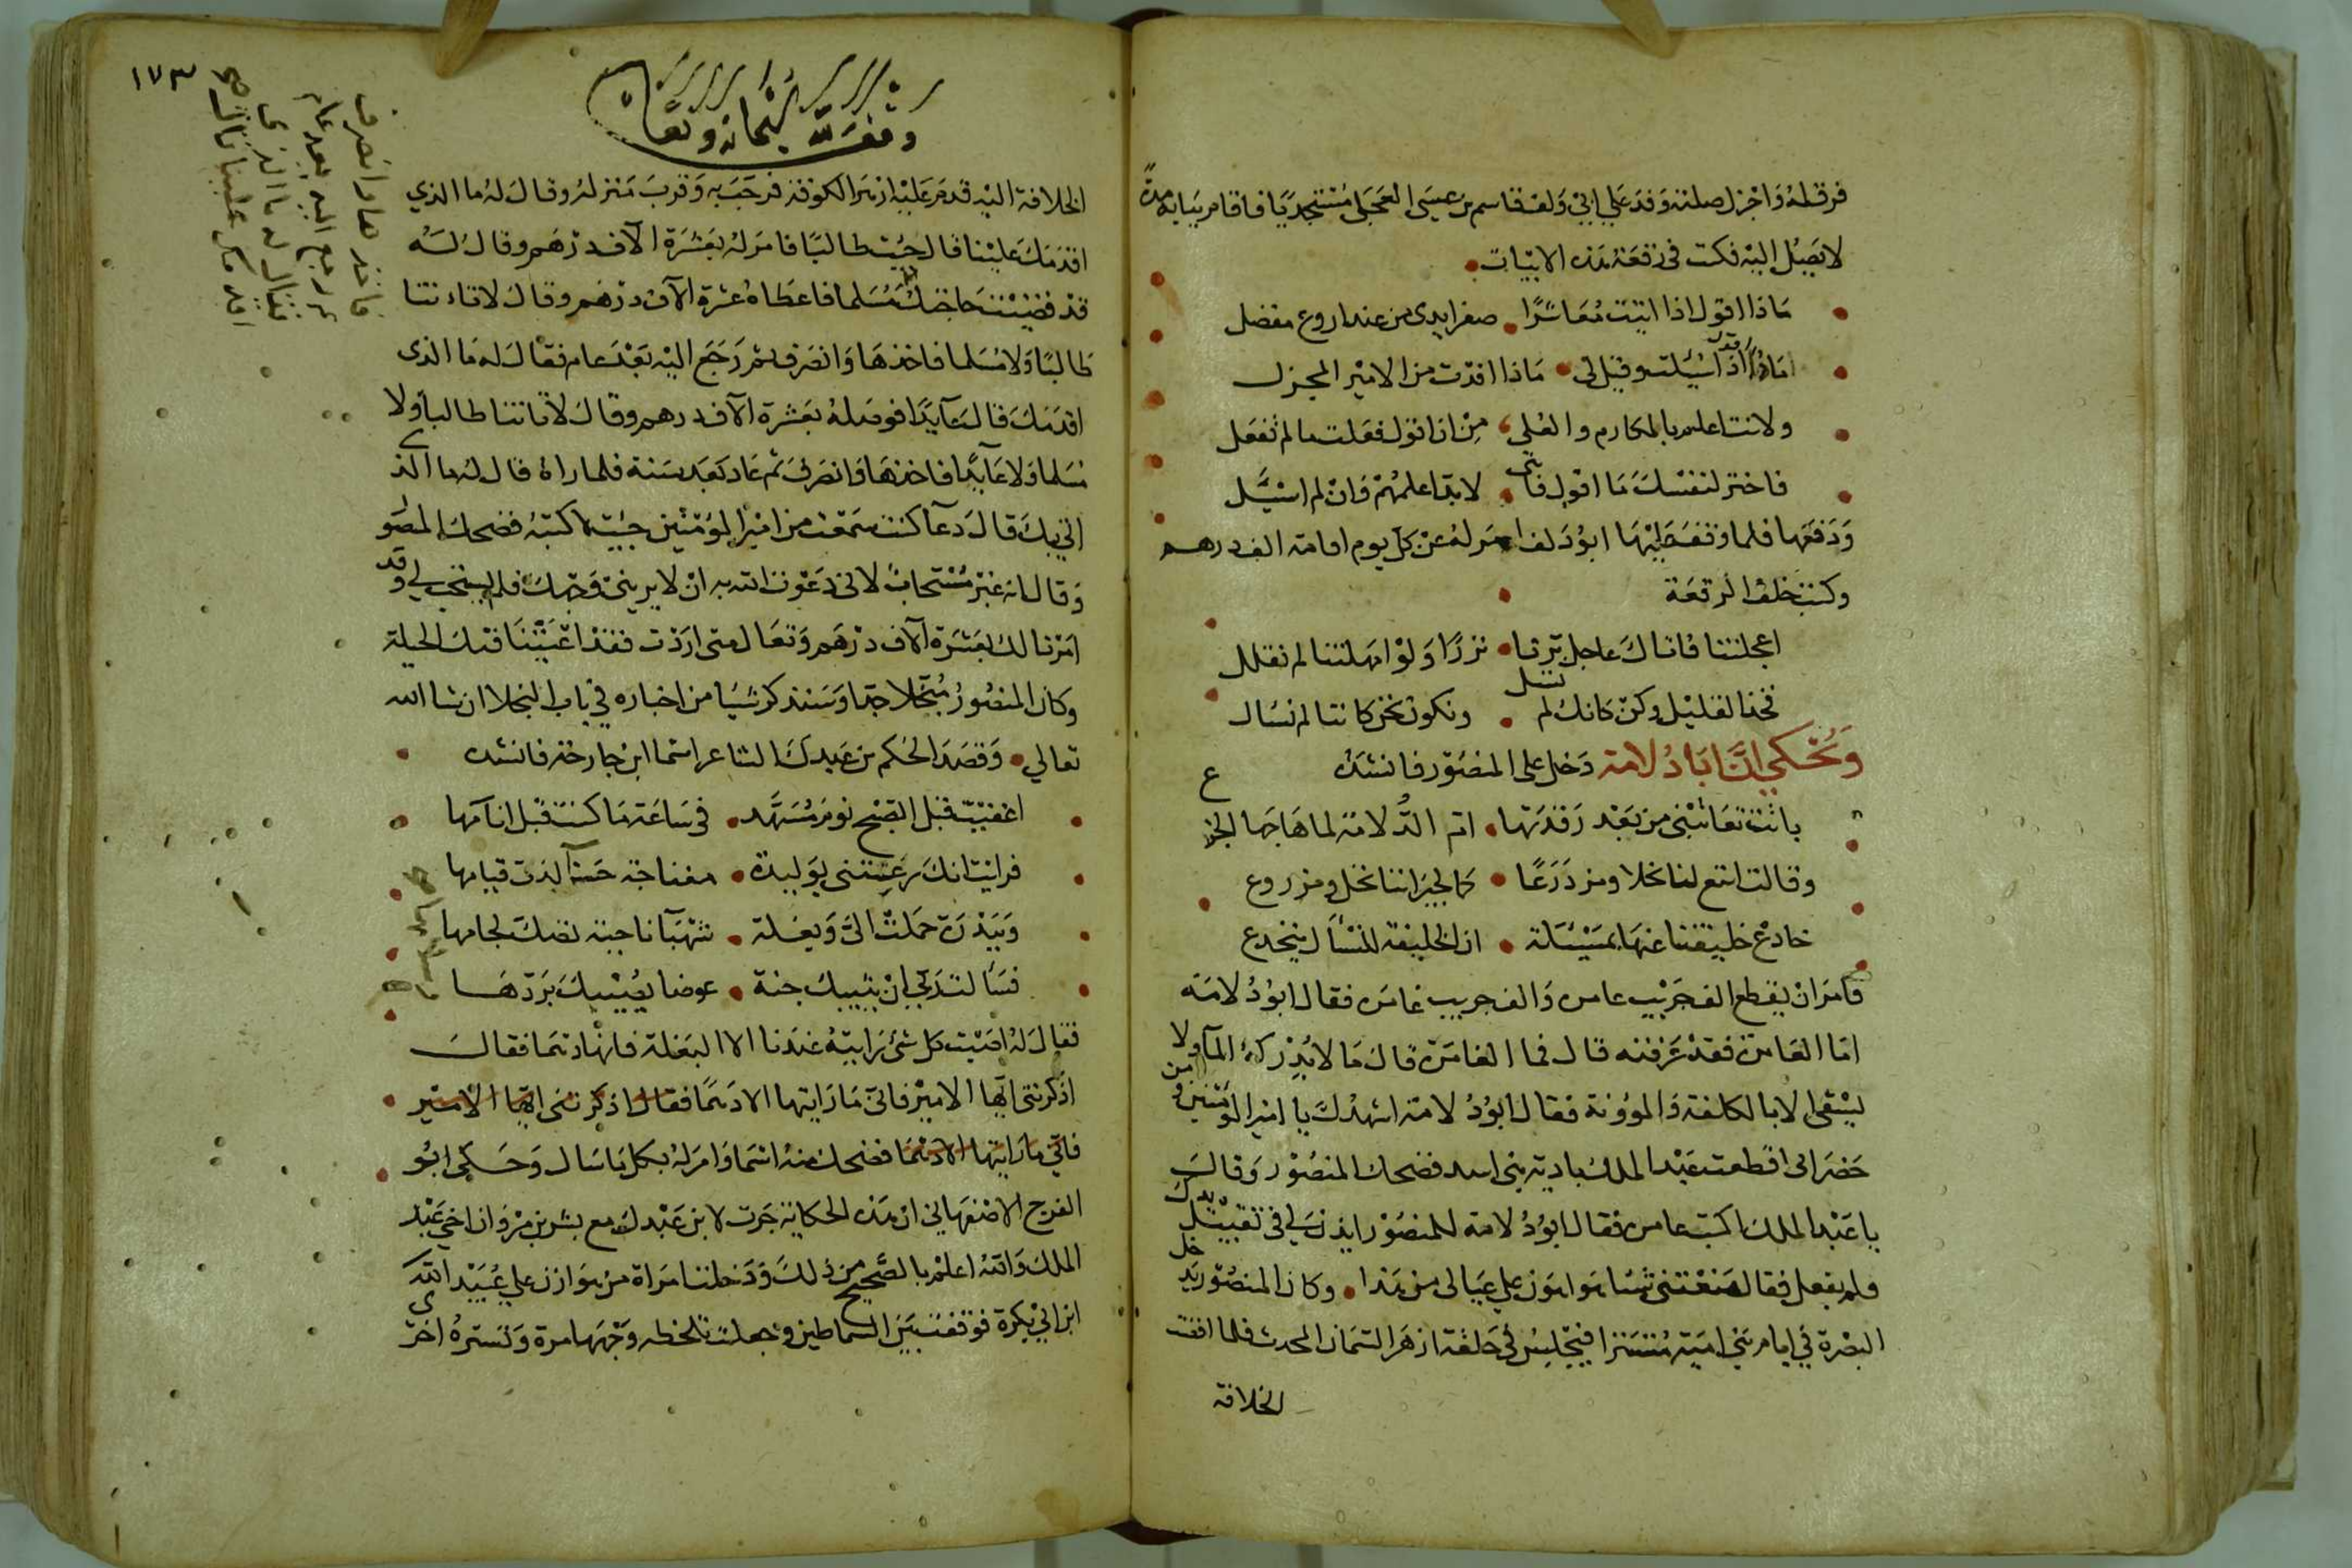 فرق له وَاجْزل صلته وَفدَ علي ابي دَلف قاسم بن عيسَى العجَلى مُسْتجديًا فاقام ببَابه مدّة
لا يَصِلُ اليْه فكتب فى رقعَة هَذه الابيَات
مَاذا اقول اذا اتيت مَعَاشرًا صفرا يدى من عند اروع مفضل
مَاذا اقول اذا سُئلت وقيل لى مَاذا افدْت من الامير المجزل
ولانت اعلم بالمكارم والعُلى مِنْ ان اقول فعَلت ما لم تفعَل
فاختر لنفسْك مَا اقول فانى لا بدّ اعلمهُمْ وَانْ لم اسئَل
وَدَفعَها فلما وقفَ عَليْهَا ابوُ دَلف امرَ لهُ عنْ كل يوم اقامه الف درهم
وكتب خلف الرقعَة
اعجلتنا فاتاك عاجل بّرنا نزرًا وَلوْ امهلتنا لم نقلل
فخذ القليْل وكنْ كانك لم تسل ونكون نحْن كاننا لم نسْال
وَيُحكي انَّ ابَا دُلامة دَخل على المنصُوّر فانشدَهُ
باتت تعَاتبْنى من بَعْد رَقدَتهَا امّ الدُّلامة لما هَاجَها الجزع
وقالت ابتع لنا نخلا ومزدَرَعًا كما لجيرَاننا نخل ومزدروع
خادعْ خليفتنا عنهَا بمَسْئلة ان الخليفة للسْأل ينخدع
فامَرَ انْ يقطع الف جَريْب عامر وَالف جريب غامَر فقال ابوُ دُلامَه
امّا العَامر فقدْ عَرَفته قال فما الغامرْ قالَ مَا لا يُدْركهُ المآ ولا
يسْقى الا بالكلفة وَالموُونة فقال ابوُ دُلامة اشهدُكَ يا اميْر الموُمنين ومن
حَضَر انى اقطعت عَبْد الملك بادية بنى اسد فضحك المنصُوْر وَقالَ
يا عَبْد الملك اكتب عامر فقال ابوُ دُلامه للمنصُوْر ايذن لي في تقبيْل يدك
فلم يفعل فقال مَنعْتنى شيئا هَو اهوَن على عيَالى من هَذا وكان المنصُوْر يدخل
البصْرة في ايام بَني اميَة مُستترا فيَجْلسُ في حَلقة ازهَر السّمان المحدث فلما افضت
الخلافة
١٧٣
وقف لله سبحانه وتعالى
الخلافة اليْه قدمَ عَليْه ازهر الكوفة فرحّبَ بهِ وَقربَ مَنزلهُ وقالَ لهُ ما الذي
اقدَمَكَ عليْنا قال جيْت طالبًا فامَرَ لهُ بعَشرَة الآف درْهم وقالُ لهُ
قدْ قضيْت حَاجَتكْ مُسَلما فاعطاهُ عشرة الآف درْهم وقالَ لا تاءتنا
طالبًا وَلا مُسَلما فاخذهَا وَانصَرف ثمَّ رَجَعَ اليْه بَعْدَ عام فقالَ لهُ مَا الذى
اقدَمَكَ قالَ عَآيدًا فوصَلهُ بعَشرة الآف درهم وقالَ لا تاتنا طالبا ولا
مُسَلما وَلا عَآيدًا فاخذهَا وَانصَرفَ ثم عَاد بَعَد سَنة فلما راهُ قال لهُ ما الذى
اتي بكَ قالَ دعآ كنت سَمعْت من اميْر الموُمنْين جيْت لاكتبهُ فضحك المنصُو
وَقالَ انه غيْر مُسْتحابُ لاني دَعَوْت الله به انْ لا يرينيْ وَجهكَ فلم يستجب لي وَقد
امَرْنا لكَ بعَشرَة الآف درْهَم وَتعَال متى اردْت فقدْ اعْيَتْنَا فيك الحيلة
وكان المنصُورُ مُبَخّلا جدّا وَسَنذكر شيئا من اخباره في باب البخلا ان شا الله
تعالي وَقصَدَ الحكم بن عَبدلَ الشاعر اسمَا ابن خارجَة فانشدَهُ
اغفيْت قبْل الصّبْح نومَ مُسَهّد في سَاعَة مَا كنتَ قبْل انامَها
فرايْت انكَ رعتنى بوَليدَة مغناجَة حَسَنآ لدَى قيامها
وَبَبدْرَة حَمَلتْ اليَّ وَبغلة شهْبَآ ناجية تصكَ لجامها
فسَأ لتَ رَبّي انْ يثيبكَ جنة عوضا يصُيْبكَ بَردّهَا
فقالَ لهُ اصَبْتَ كل شئ رَايتهُ عنْدَنا الا البَغلة فانها دَهمَا فقال
اذكرتنى ايّها الامير فانى مَا رَايتها الا دَهْمَا فقال اذكرتنى ايّها الامير
فانّي مَا رَايتها الا دَهْمَا فضحك منهُ اسْمَا وَامَرَ لهُ بكل مَا سَال وَحَكى ابوُ
الفرج الاصْفهَانى ان هَذه الحكايَة جَرت لابن عَبْدل مع بشر بن مرْوَان اخي عَبْد
الملك وَاللهُ اعلمْ بالصّحيح منْ ذلكَ وَدَخلت امَراة منْ هَوَازن علي عُبَيْد الله
ابن ابي بكرة فوَقفت بَيْن السّماطين وَجعلت تلحظه وَجْهَها مرة وَتسترهُ اخْرى